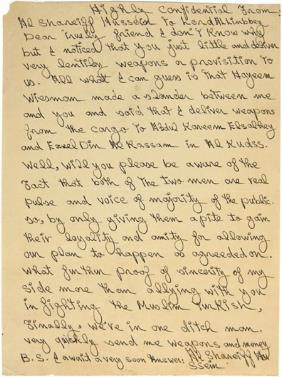 Highly Confidential From
Al Shareiff Hussein to Lord Allimbbey
Dear Truely friend I don't know why
but I noticed that you just little and deliver
very lentiley weapons or provisition to
us. All what I can guess is that Hayeem
Wiesman made a slander between me
and you and said that I deliver weapons
from the cargo to Abdul Kareem Elsalhey
and EzzelDin Al Kassam in Al Kudss.
Well, will you please be aware of the
fact that both of the two men are real
pulse and voice of majority of the public.
so, by only giving them a pite to gain
their leyality and amity for allowing
our plan to happen as agreed on.
what further proof of sincerity of my
side more than allying with you
in fighting the Muslim Turkish,
Finally, we're in one ditch man.
very quickly send me weapons and money
B.S. I await a very soon Answer. Al Shareiff Hu
ssein